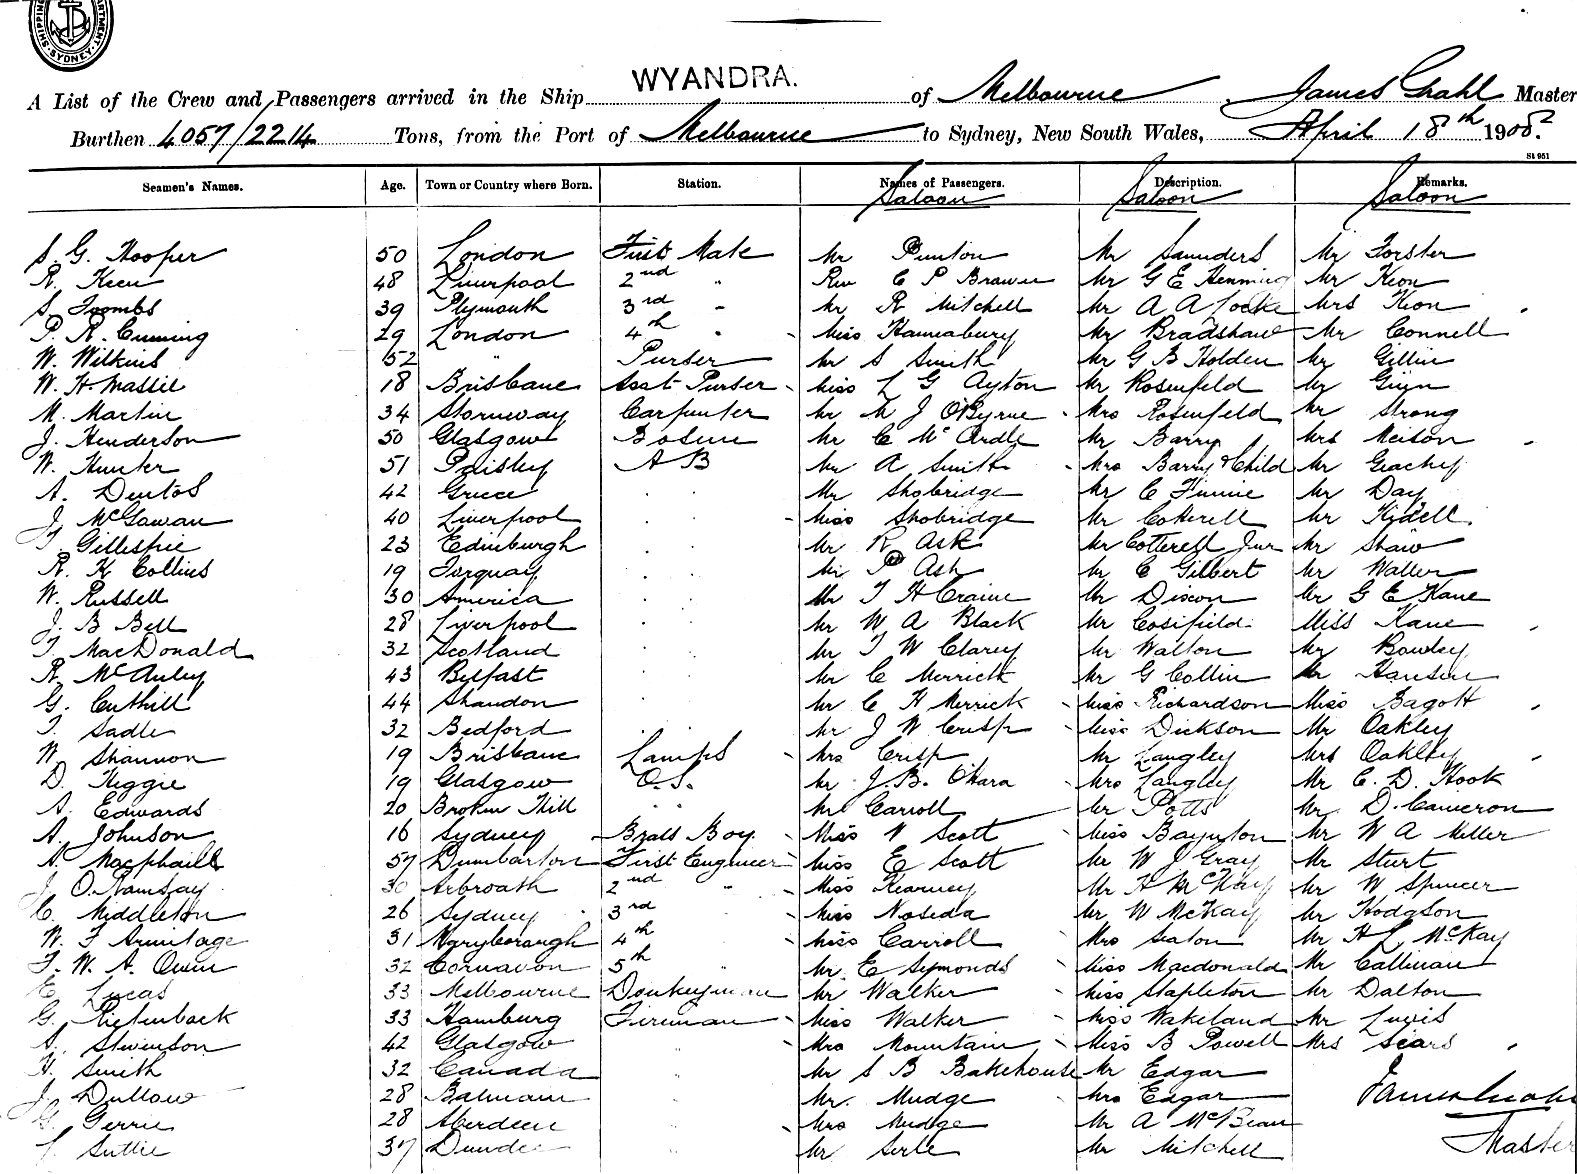 SHIPPING DEPARTMENT SYDNEY
WYANDRA.
A List of the Crew and Passengers arrived in the Ship of Melbourne, James Grahl Master
Burthen 4057/2214 Tons, from the Port of Melbourne to Sydney, New South Wales, April 18th 1908.
St 951
Seamen's Names. Age. Town or Country where Born. Station. Names of Passengers. Description. Remarks.
Saloon Saloon Saloon
S. G. Hooper 50 London First Mate Mr Punton Mr Saunders Mr Forster
R. Keen 48 Liverpool 2nd " Rev C P Brawn Mr G E Henming Mr Keon
S. Toombs 39 Plymouth 3rd " Mr R Mitchell Mr A A Locke Mrs Keon
P. R. Cumming 29 London 4th " Miss Hannabury Mr Bradshaw Mr Connell
W. Wilkins 52 " Purser Mr S Smith Mr G B Holden Mr Gillin
W. H. Massie 18 Brisbane Asst Purser Miss L G Ayton Mr Rosenfeld Mr Guyn
M. Martin 34 Stornway Carpenter Mr M J O'Byrne Mrs Rosenfeld Mr Strong
J. Henderson 50 Glasgow Bosun Mr C McArdle Mr Barry Mrs Neison
W. Hunter 51 Paisley A B Mr A Smith Mrs Barry & Child Mr Geachy
A. Dentos 42 Greece Mr Shobridge Mr C Finnie Mr Day
J. McGowan 40 Liverpool Miss Shobridge Mr Cotterell Mr Kidell
T. Gillespie 23 Edinburgh Mr R Ask Mr Cotterell Jur Mr Shaw
R. H Collins 19 Torquay Mr P Ash Mr C Gilbert Mr Waller
W. Russell 30 America Mr T H Craine Mr Dixon Mr G E Kane
J. B Bell 28 Liverpool Mr W A Black Mr Cosifield Miss Kane
T. MacDonald 32 Scotland Mr T W Clarey Mr Walton Mr Bowley
R. McAuley 43 Belfast Mr C Merrick Mr G Collin Mr Hansen
G. Cuthill 44 Shandon Mr C H Merrick Miss Richardson Miss Bagott
T. Sadle 32 Bedford Mr J W Crisp Miss Dickson Mr Oakley
W. Shannon 19 Brisbane Lamps Mrs Crisp Mr Langley Mrs Oakley
D. Keggie 19 Glasgow O.S. Mr J. B. O'Hara Mrs Langley Mr C. D. Hook
A. Edwards 20 Broken Hill " " Mr Carroll Mr Potts Mr D. Cameron
A. Johnson 16 Sydney Brass Boy Miss V Scott Miss Baynton Mr W A Miller
A. Macphaill 57 Dumbarton First Engineer Miss E Scott Mr W J Gray Mr Sturt
J. O. Ramsay 30 Arbroath 2nd " Miss Kearney Mr H McKay Mr W Spencer
C. Middleton 26 Sydney 3rd Miss Noseda Mr W McKay Mr Hodgson
W. T Armitage 31 Maryborough 4th Miss Carroll Mrs Seaton Mr H L McKay
T. W. A. Owen 32 Cornavon 5th " Mr E Symonds Miss Macdonald Mr Callinan
E. Lucas 33 Melbourne Donkeyman Mr Walker Miss Stapleton Mr Dalton
G. Riefenback 33 Hamburg Fireman Miss Walker Miss Wakeland Mr Lewis
A. Stevenson 42 Glasgow " Mrs Mountain Miss B Powell Mrs Sears
H. Smith 32 Canada " Mr S B Bakehouse Mr Edgar
J. Dullow 28 Balmain " Mr. Mudge Mrs Edgar James Grahl
G. Gerrie 28 Aberdeen " Mrs Mudge Mr A McBean Master
Suttie 37 Dundee " Mr Serle Mr Mitchell